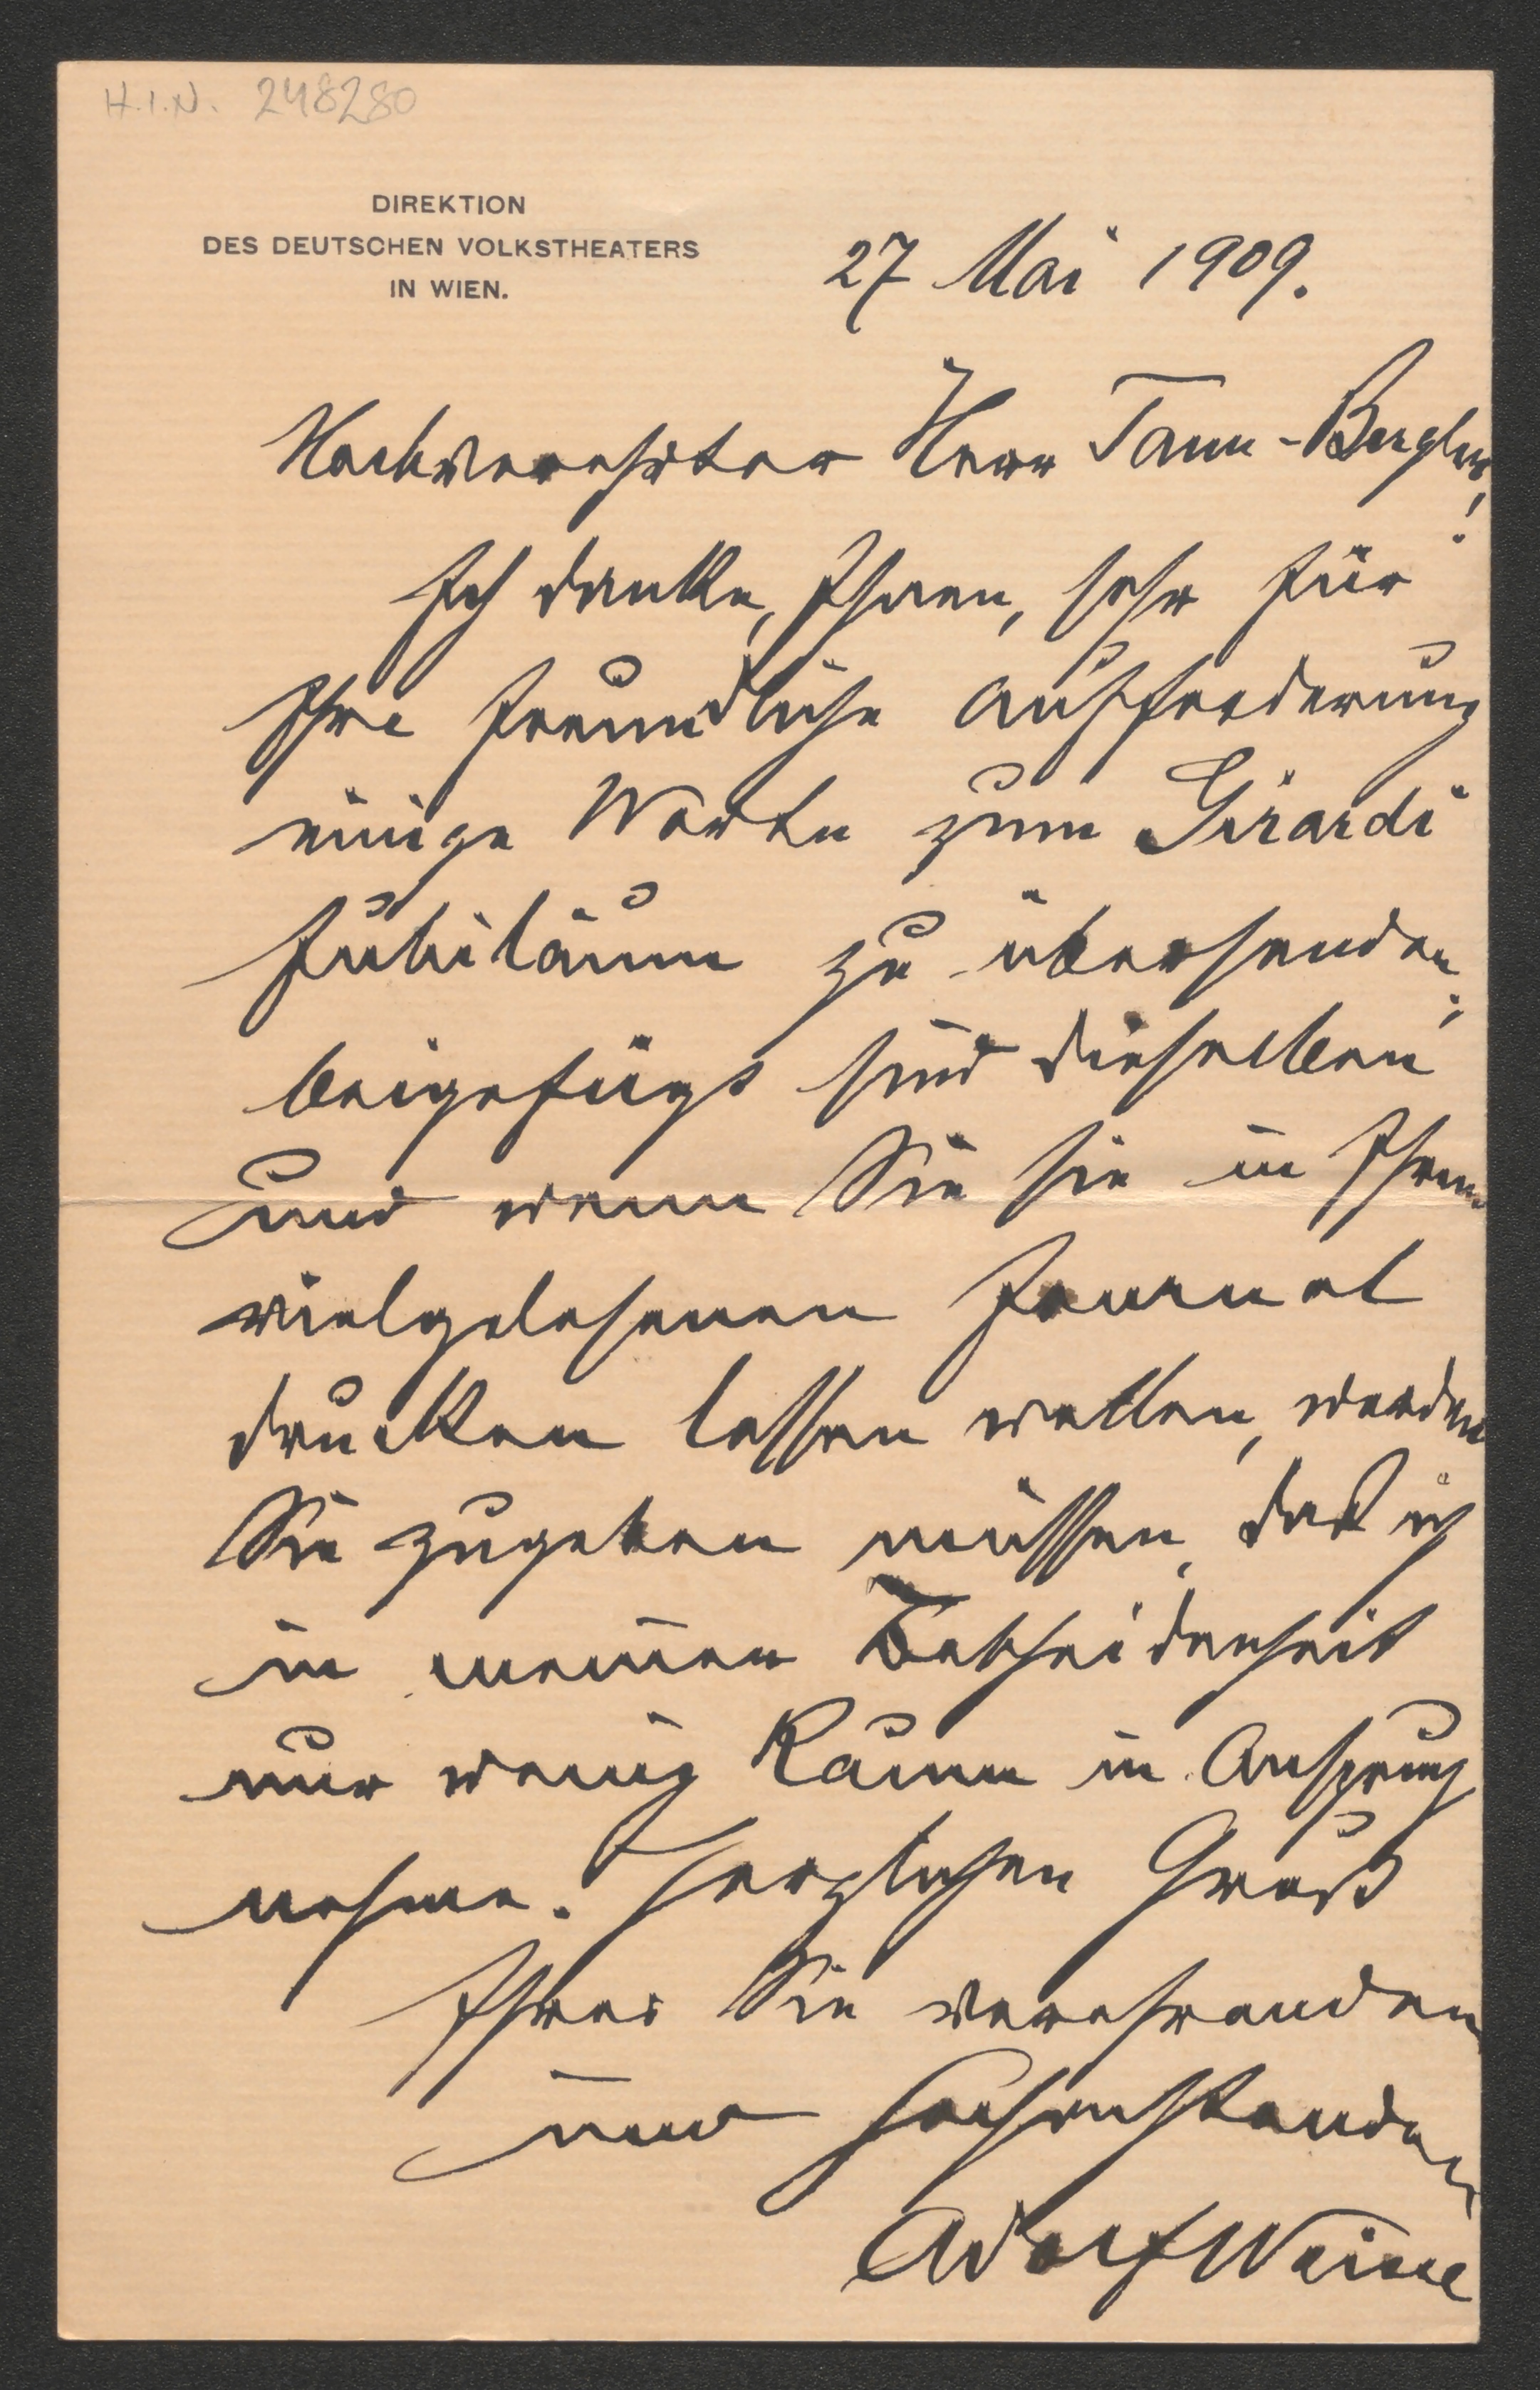 H.I.N. 248280
DIREKTION
DES DEUTSCHEN VOLKSTHEATERS
IN WIEN.
27 Mai 1909.
Hochverehrter Herr Tann-Bergler!
Ich danke Ihnen, sehr für
Ihre freundliche Aufforderung
einige Worte zum Girardi
Jubiläum zu übersenden;
beigefügt sind dieselben
und wenn Sie sie in Ihrem
vielgelesenen Journal
drucken lassen wollen, werden
Sie zugeben müssen, daß ich
in meiner Bescheidenheit
nur wenig Raum in Anspruch
nehme. Herzlichen Gruß
Ihres Sie verehrenden
und hochschätzenden
Adolf Weisse